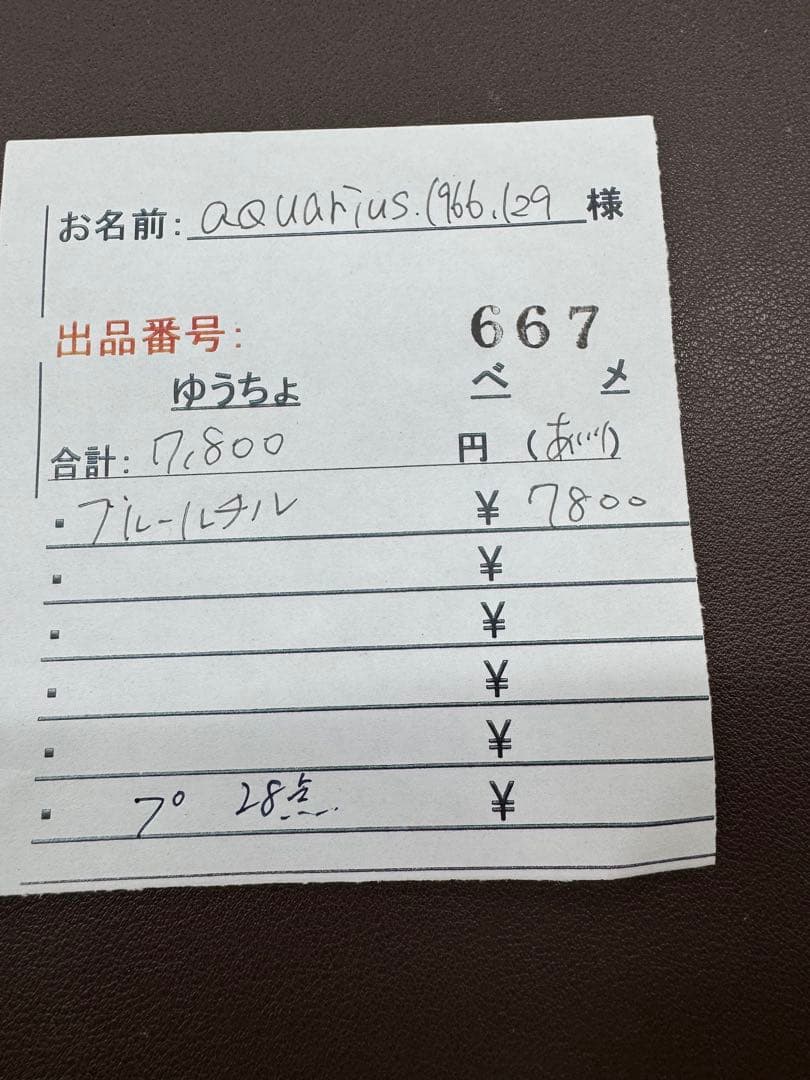 お名前: aquarius.1966.129 様
出品番号: 667
ゆうちょ ペ メ
合計: 7,800 円 (あいり)
・ブルールチル ¥ 7800
・ ¥
・ ¥
・ ¥
・ ¥
・ プ 28点 ¥